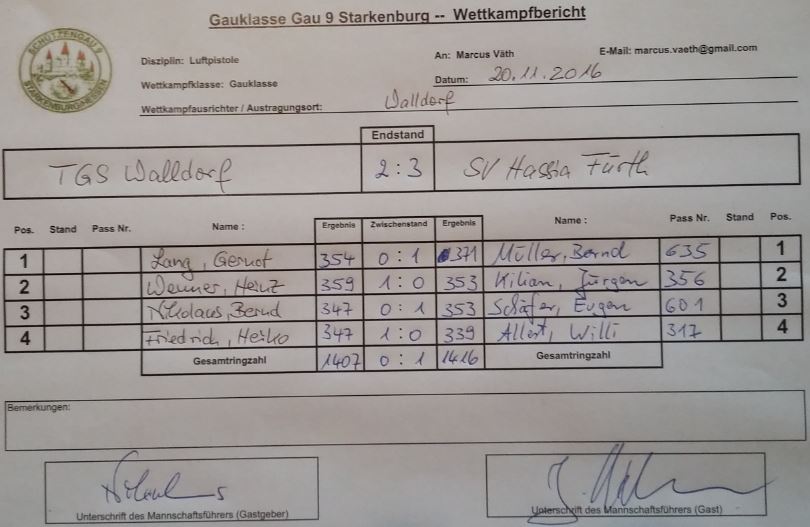 Gauklasse Gau 9 Starkenburg -- Wettkampfbericht
SCHÜTZENGAU 9
STARKENBURG/HESSEN
Disziplin: Luftpistole An: Marcus Väth E-Mail: marcus.vaeth@gmail.com
Wettkampfklasse: Gauklasse Datum: 20.11.2016
Wettkampfausrichter / Austragungsort: Walldorf
Endstand
TGS Walldorf 2:3 SV Hassia Fürth
Pos. Stand Pass Nr. Name : Ergebnis Zwischenstand Ergebnis Name : Pass Nr. Stand Pos.
1 Lang, Gernot 354 0:1 371 Müller, Bernd 635 1
2 Wenner, Heinz 359 1:0 353 Kilian, Jürgen 356 2
3 Nikolaus, Bernd 347 0:1 353 Schäfer, Eugen 601 3
4 Friedrich, Heiko 347 1:0 339 Allert, Willi 317 4
Gesamtringzahl 1407 0:1 1416 Gesamtringzahl
Bemerkungen:
Unterschrift des Mannschaftsführers (Gastgeber) Unterschrift des Mannschaftsführers (Gast)